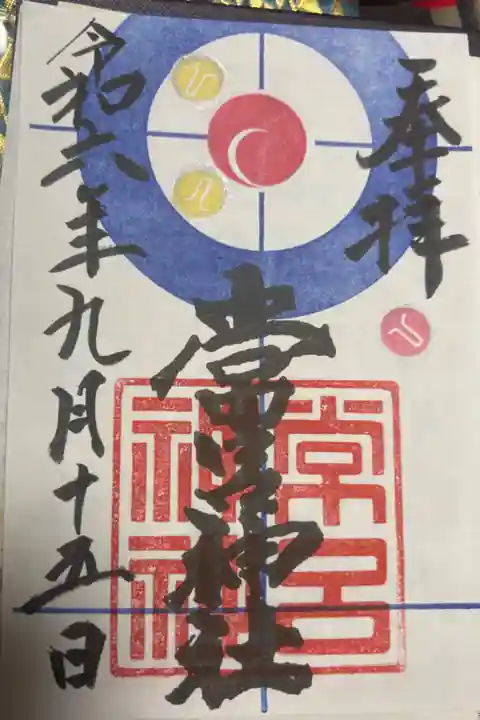 奉拝
常呂神社
常呂
神社
令和六年九月十五日